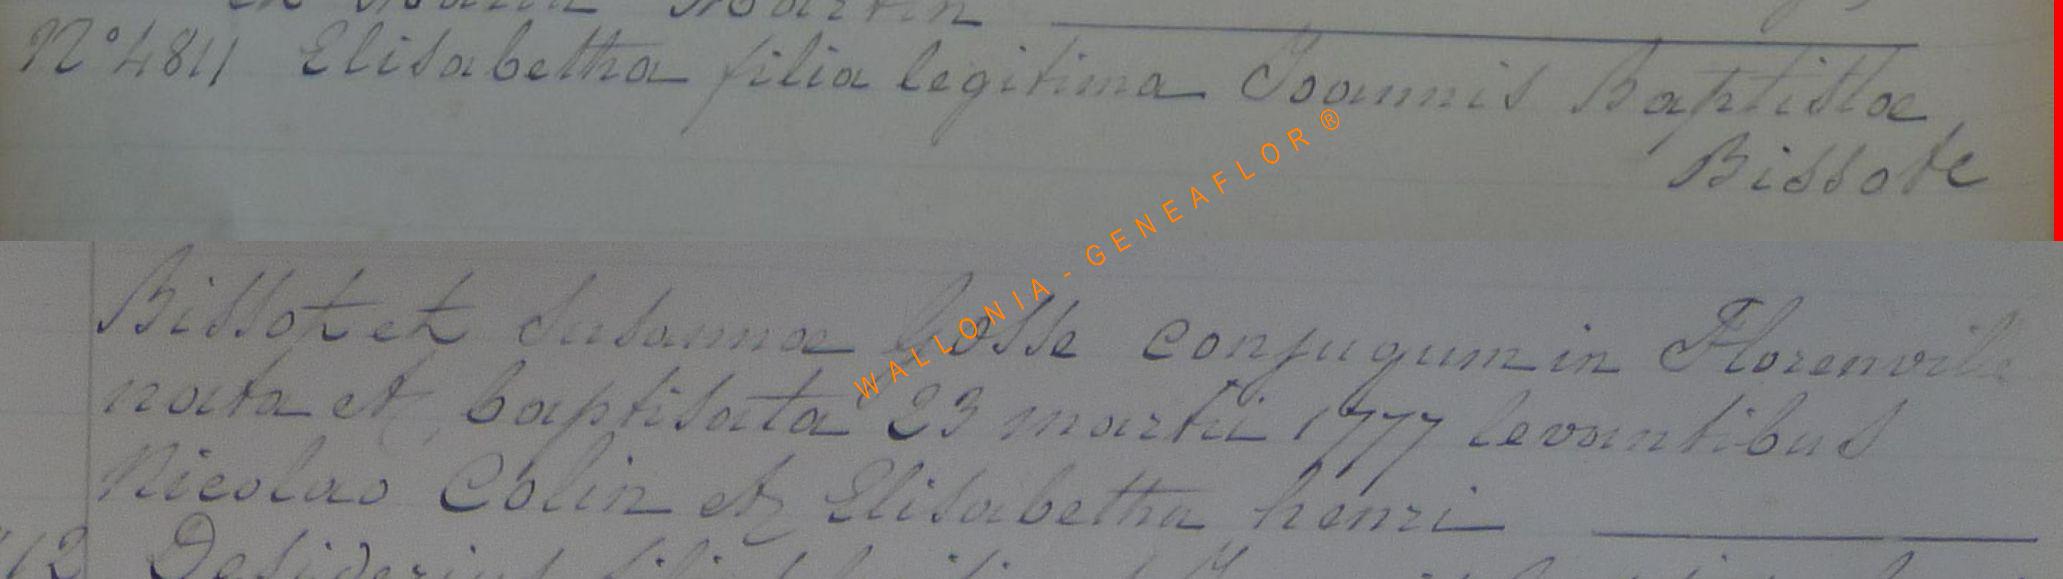 ex Maria Martin
N° 4811 Elisabetha filia legitima Joannis Baptistae
Bissote
Bissot et Susanna Gosse conjugum in Florenvill
nata et baptisata 23 martii 1777 levantibus
Nicolao Colin et Elisabetha henri
12 Desiderius
WALLONIA - GENEAFLOR ®